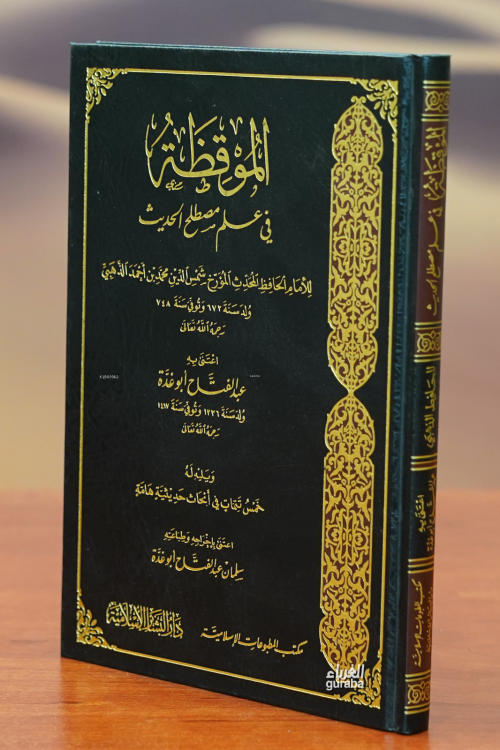 المُوقِظَةُ
في علم مصطلح الحديث
للإمام الحافظ المحدث المؤرخ شمس الدين محمد بن أحمد الذهبي
ولد سنة ٦٧٣ وتوفي سنة ٧٤٨
رحمه الله تعالى
اعتنى به
عبد الفتاح أبو غدة
ولد سنة ١٣٣٦ وتوفي سنة ١٤١٧
رحمه الله تعالى
ويليه له
خمس تتمات في أبحاث حديثية هامة
اعتنى بإخراجه وطباعته
سلمان عبد الفتاح أبو غدة
مكتب المطبوعات الإسلامية
دار البشائر الإسلامية
الموقظة في علم مصطلح الحديث
للحافظ الذهبي
مكتب المطبوعات الإسلامية
الغرباء
guraba